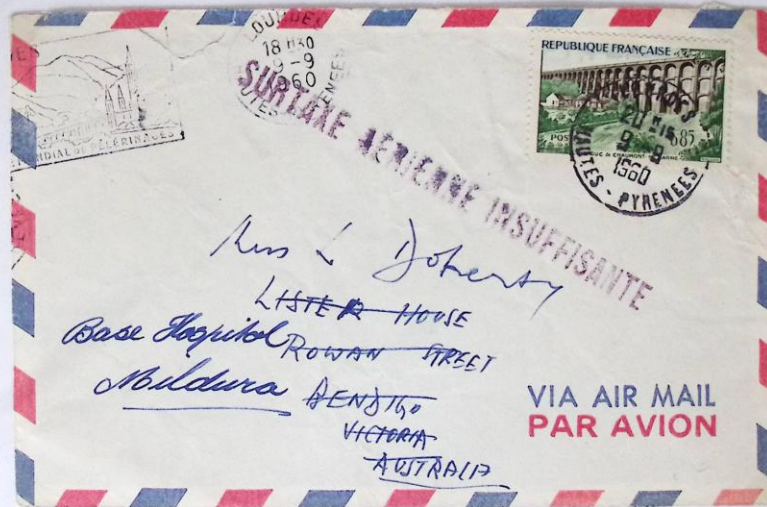 LOURDES
18 H30
9-9
1960
HAUTES PYRENEES
MONDIAL DE PÈLERINAGES
REPUBLIQUE FRANÇAISE
POSTES
0,85
VIADUC de CHAUMONT-HTE MARNE
20 H15
9-9
1960
HAUTES-PYRENEES
SURTAXE AÉRIENNE INSUFFISANTE
Miss L Doherty
LISTER HOUSE
Base Hospital ROWAN STREET
Mildura BENDIGO
VICTORIA
AUSTRALIA
VIA AIR MAIL
PAR AVION